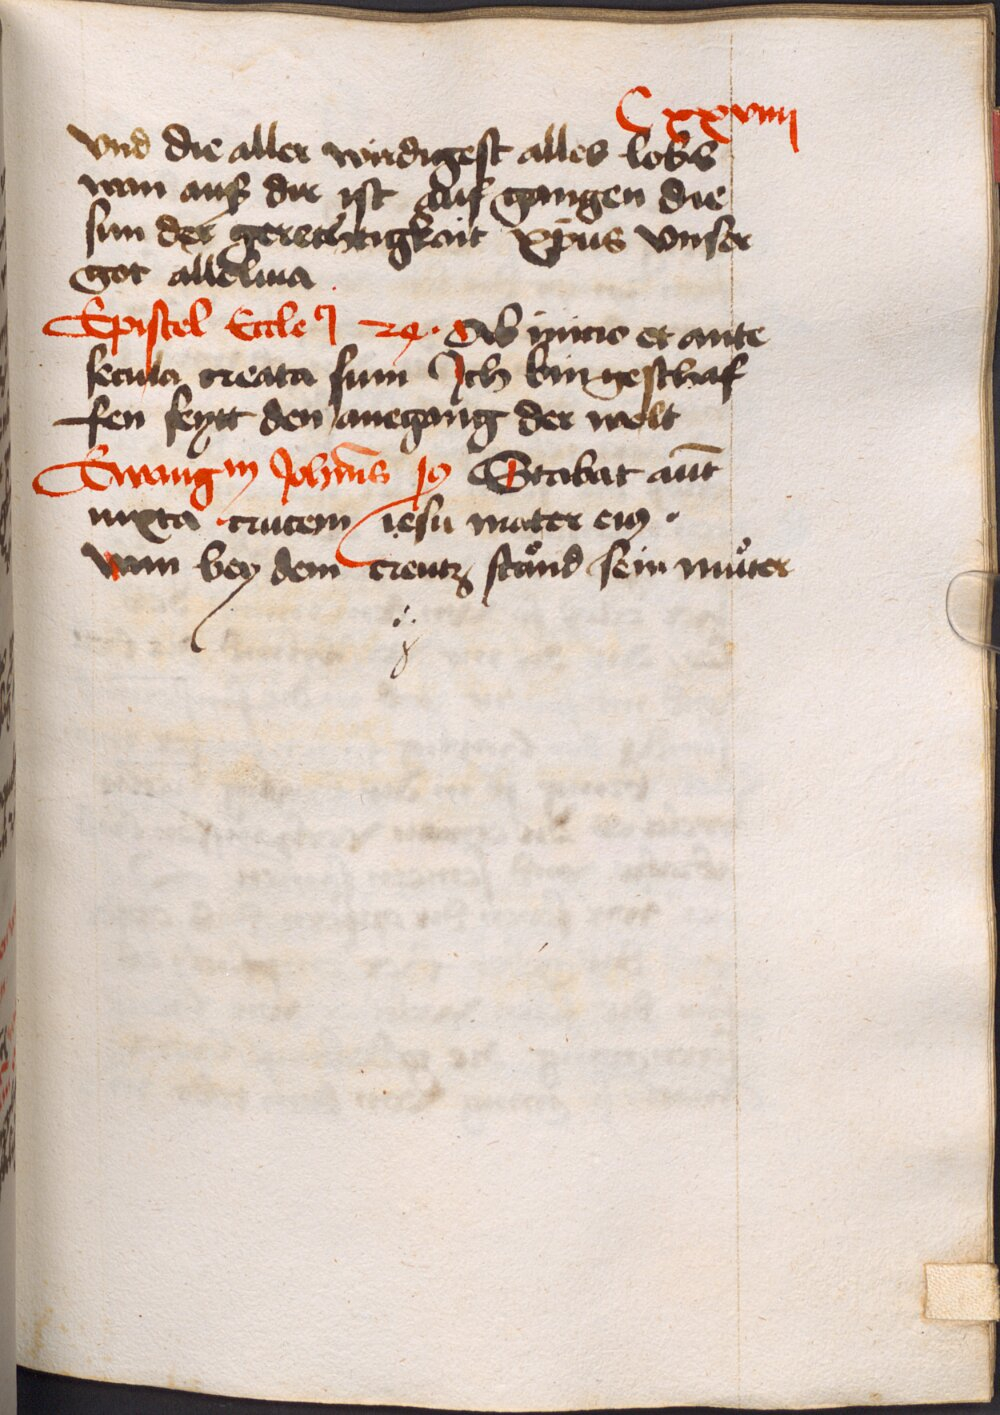 Cxxviiij
vnd die aller wirdigest alles lobs
wan auß dir ist auf gangen die
sun der gerechtigkait xp̄us vnser
got alleluia
Epistel Eccleꝯ 24. Ab inicio et ante
secula creata sum Ich bin geschaf
fen seytt den anegang der welt
Ewangm Joh̄ns Stabat aūt
iuxta crucem iesu mater eiꝯ
wan bey dem creutz stůnd sein můter